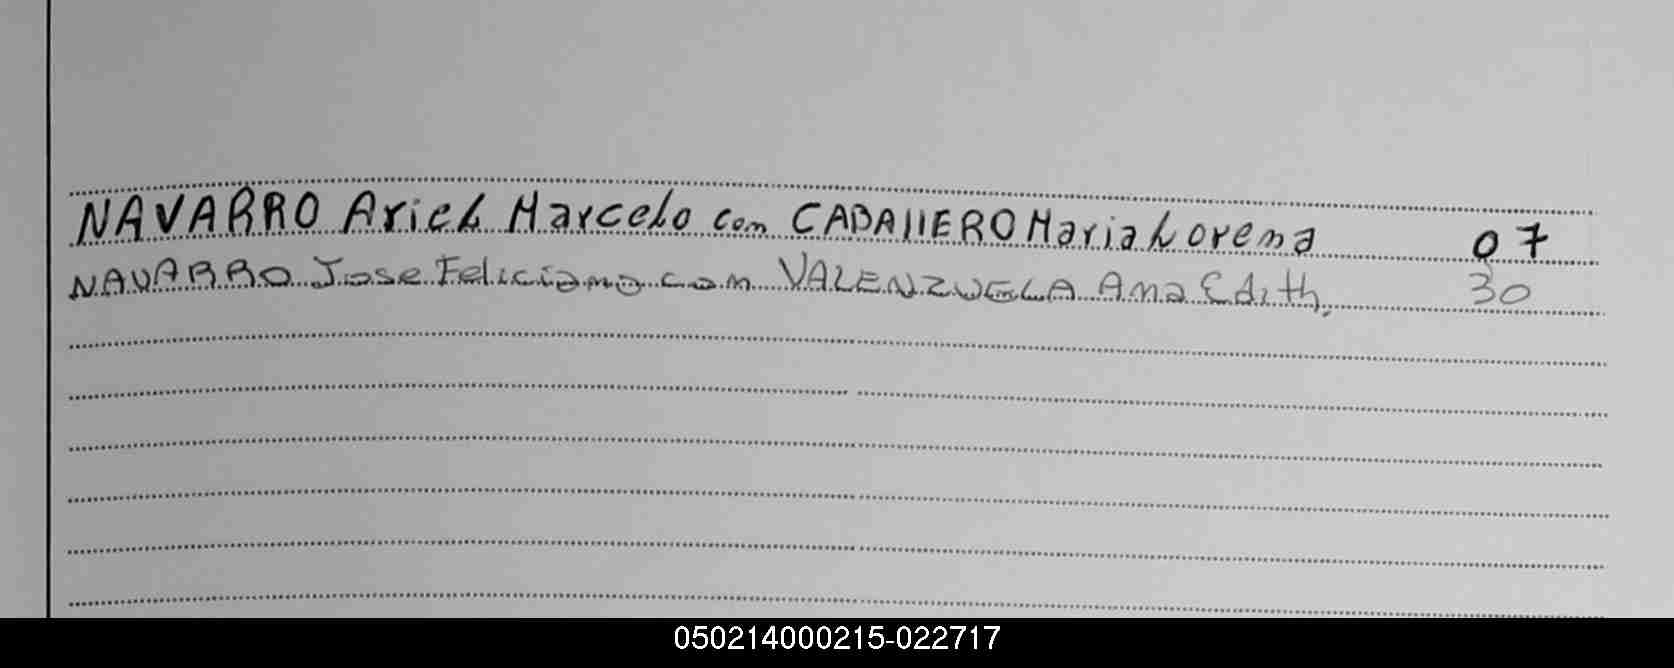 NAVARRO Ariel Marcelo con CABAllERO Maria Lorena 07
NAVARRO Jose Feliciano con VALENZUELA Ana Edith. 30
050214000215-022717